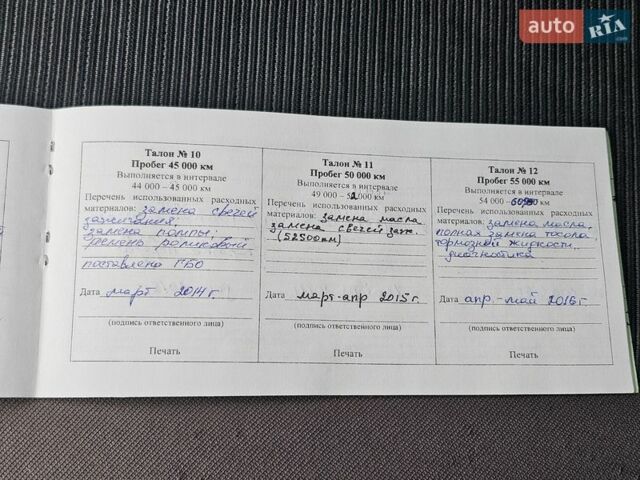 auto RIA.com
Талон № 10
Пробег 45 000 км
Выполняется в интервале
44 000 – 45 000 км
Перечень использованных расходных
материалов: замена свечей
зажигания;
замена помпы;
ремень роликовый
поставлено ГБО
Дата март 2014 г.
(подпись ответственного лица)
Печать
Талон № 11
Пробег 50 000 км
Выполняется в интервале
49 000 – 52 000 км
Перечень использованных расходных
материалов: замена масла
замена свечей заж.
(52500км)
Дата март-апр 2015 г.
(подпись ответственного лица)
Печать
Талон № 12
Пробег 55 000 км
Выполняется в интервале
54 000 –
Перечень использованных расходных
материалов: замена масла,
полная замена тосола,
тормозной жидкости.
диагностика
Дата апр.-май 2016 г.
(подпись ответственного лица)
Печать